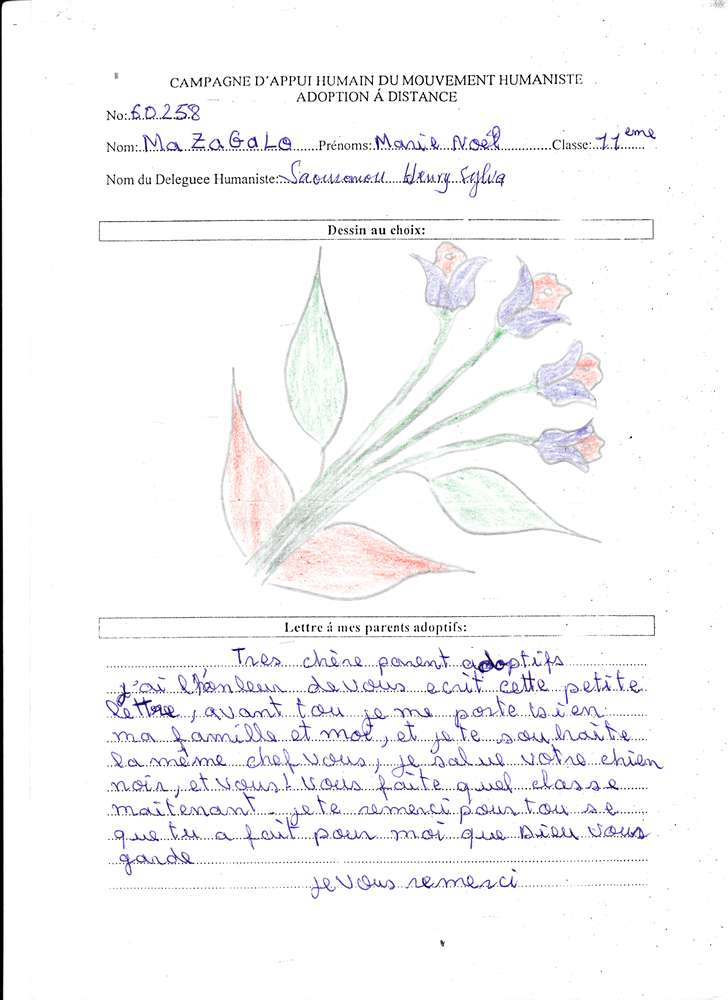 CAMPAGNE D'APPUI HUMAIN DU MOUVEMENT HUMANISTE
ADOPTION Á DISTANCE
No:.60258
Nom:.Ma ZaGaLo......Prénoms:Marie Noël............Classe:.11ème
Nom du Deleguee Humaniste:.Saouromou Henry Sylva
Dessin au choix:
Lettre á mes parents adoptifs:
Tres chère parent adoptifs
j'ai l'honleur de vous ecrit cette petite
lettre, avant tou je me porte bien
ma famille et moi, et je te souhaite
la même chef vous, je salue votre chien
noir, et vous! vous faite quel classe
maitenant. je te remerci pour tou se
que tu a fait pour moi que Dieu vous
garde
je vous remerci